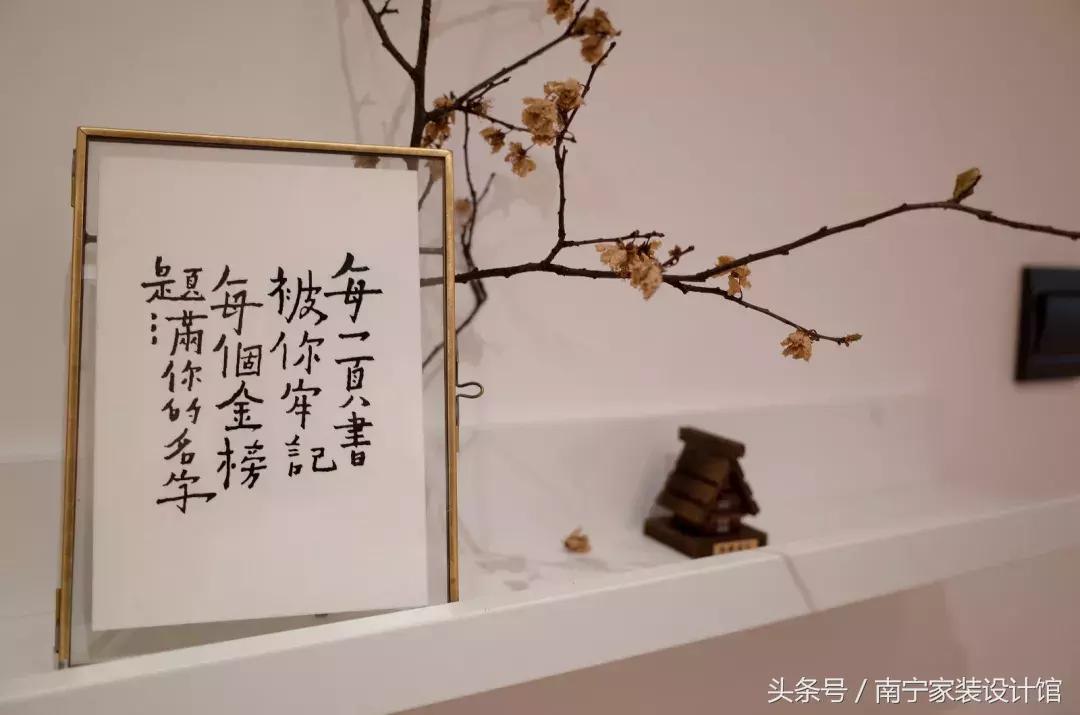 每一頁書
被你牢記
每個金榜
題滿你的名字⋯⋯
头条号 / 南宁家装设计馆